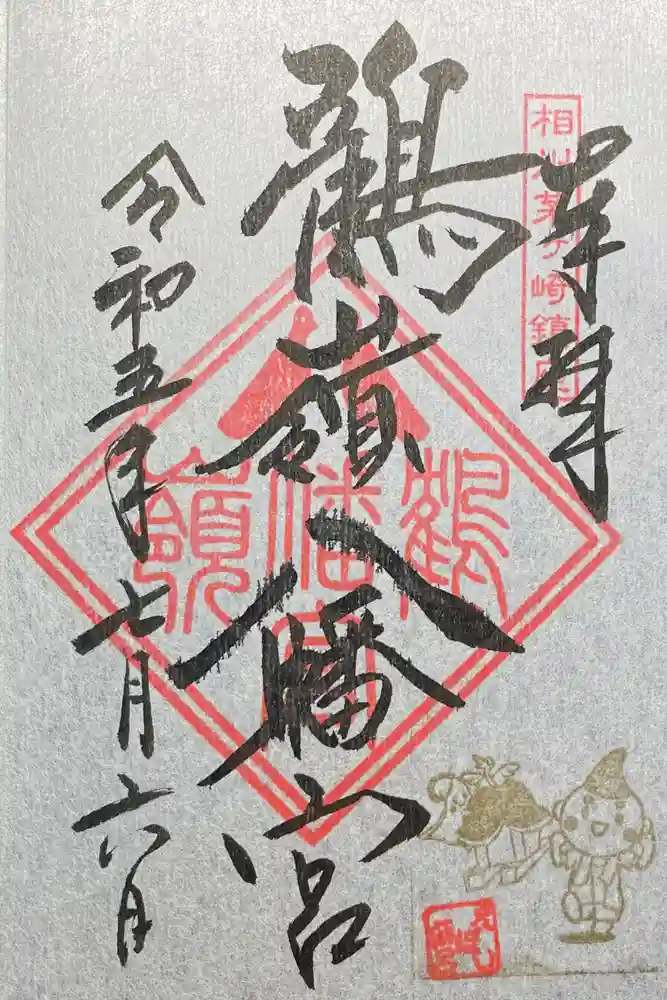 奉拝
相州茅ヶ崎鎮座
鶴嶺八幡宮
鶴嶺
八幡宮
令和五年
七月六日